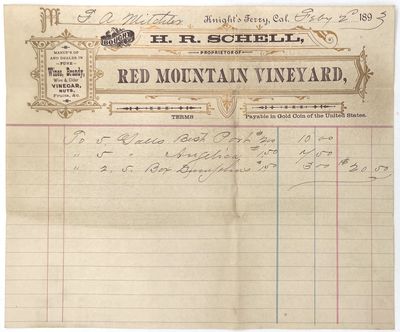 Mr F. A. Mitchler Knight's Ferry, Cal. Feby 2d 1893
BOUGHT OF
H. R. SCHELL,
PROPRIETOR OF
RED MOUNTAIN VINEYARD,
MANUF'R OF
AND DEALER IN
PURE
Wines, Brandy,
Wine & Cider
VINEGAR,
NUTS,
Fruits, &c.
TERMS Payable in Gold Coin of the United States.
To 5 Galls Best Port $2.00 10 00
" 5 " Angelica $1.50 7 50
" 2 5. Box $1.50 3 00 $20 50